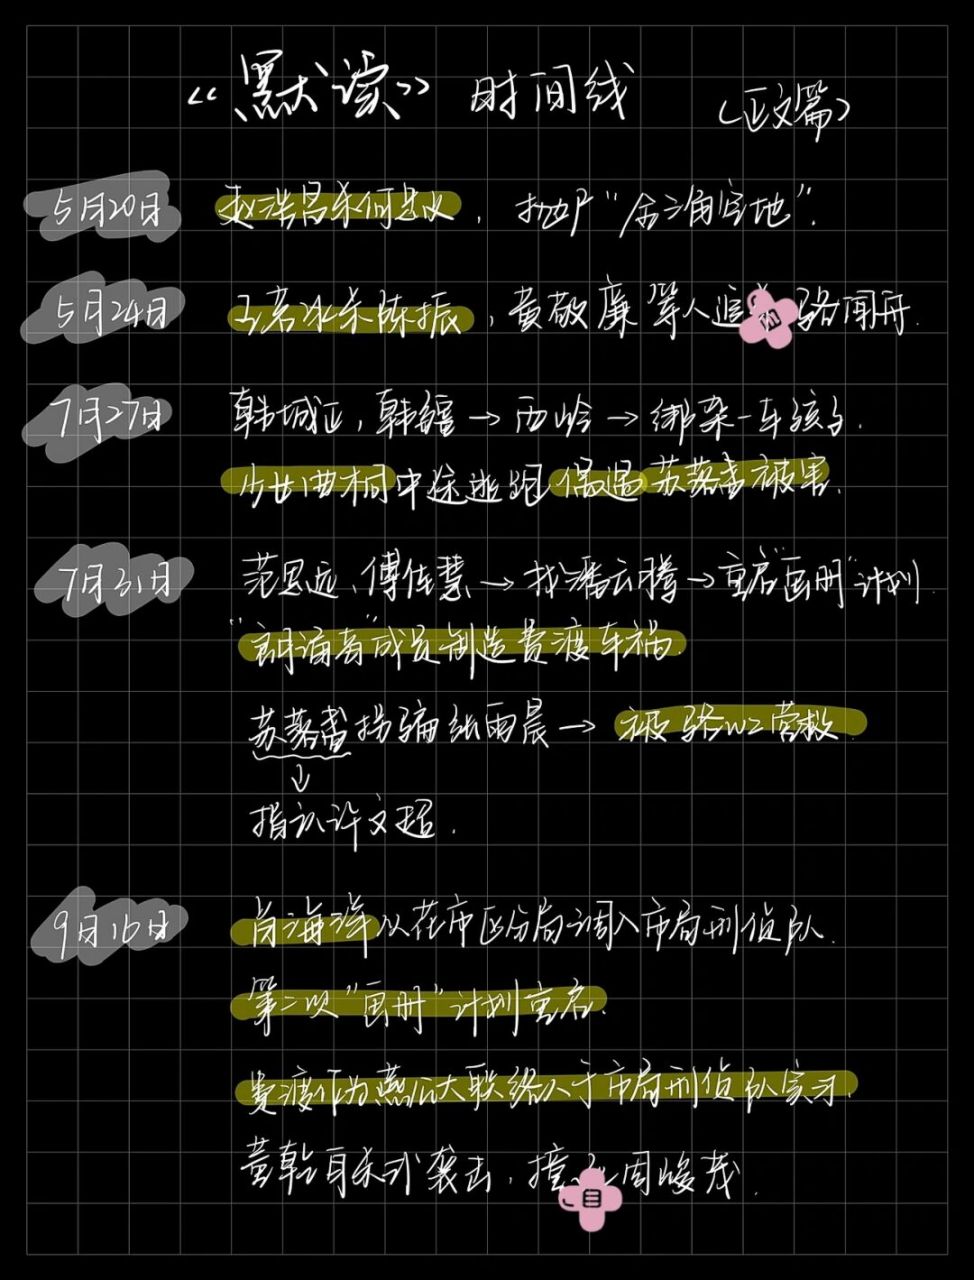 《默读》时间线 (正文篇)
5月20日 赵浩昌杀何忠义，抛尸“金三角空地”.
5月24日 王洪亮 陈振，黄敬廉等人追 骆闻舟.
7月27日 韩城正，韩疆→西岭→绑架一车孩子.
少女曲桐中途逃跑偶遇苏落盏被害.
7月31日 范思远、傅佳慧→找潘云腾→重启“画册”计划.
“朗诵者”成员制造费渡车祸.
苏落盏拐骗 雨晨→被 营救.
↓
指认许文超.
9月16日 肖海洋从花市区分局调入市局刑侦队.
第二次“画册”计划重启.
费渡作为燕公大联络人于市局刑侦队实习.
董乾自杀式袭击，撞 周峻茂.